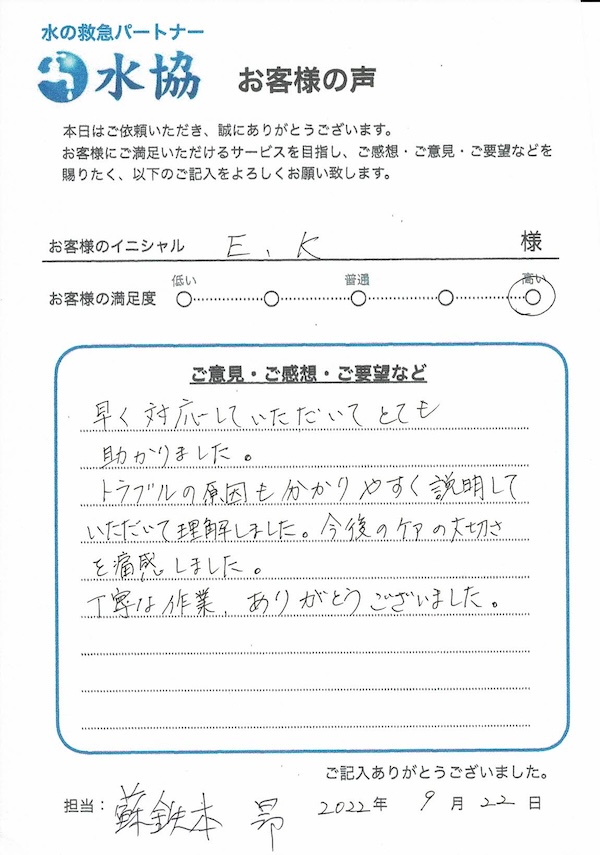 水の救急パートナー
水協 お客様の声
本日はご依頼いただき、誠にありがとうございます。
お客様にご満足いただけるサービスを目指し、ご感想・ご意見・ご要望などを
賜りたく、以下のご記入をよろしくお願い致します。
お客様のイニシャル E、K 様
低い 普通 高い
お客様の満足度
ご意見・ご感想・ご要望など
早く対応していただいてとても
助かりました。
トラブルの原因も分かりやすく説明して
いただいて理解しました。今後のケアの大切さ
を痛感しました。
丁寧な作業、ありがとうございました。
ご記入ありがとうございました。
担当: 蘇鉄本 昴 2022年 9月 22日